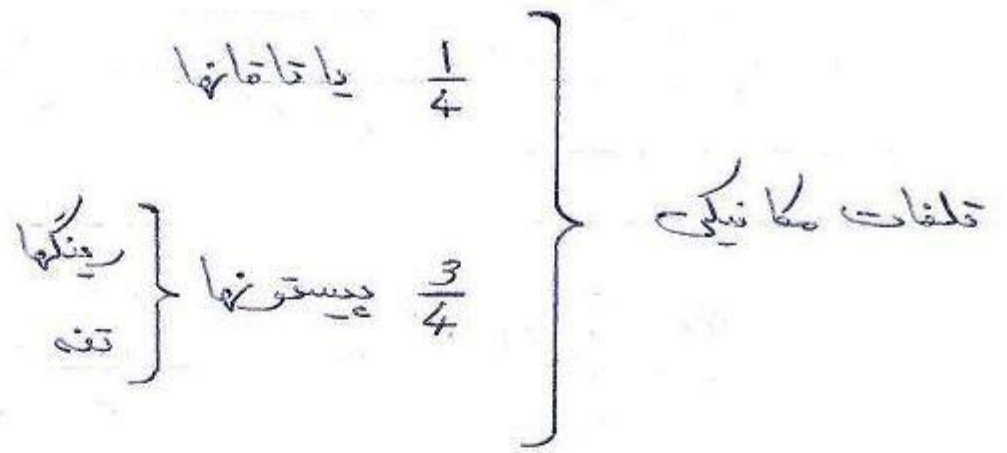 تلفات مکانیکی
1/4 یاتاقانها
3/4 پیستونها
رینگها
تنه